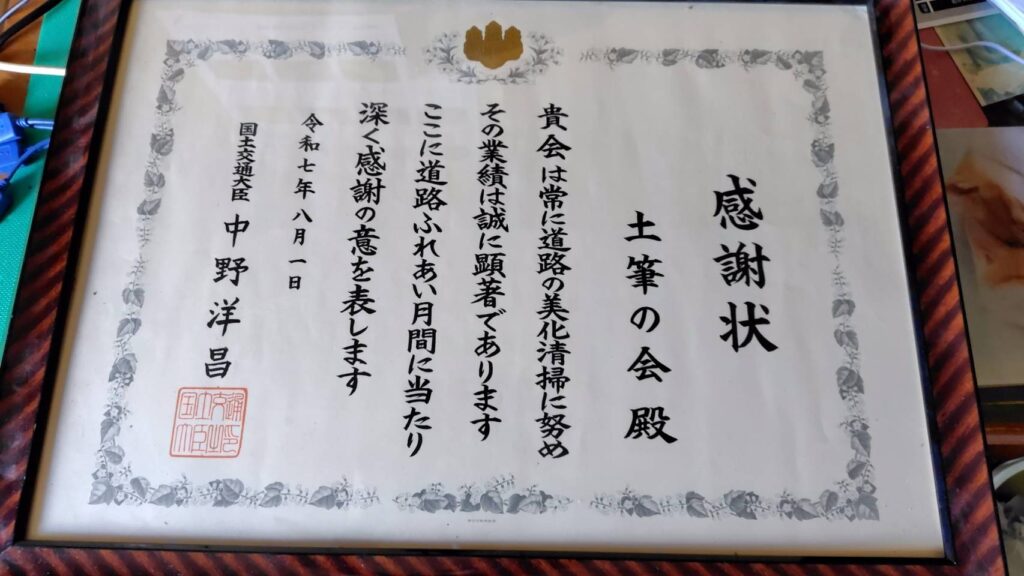 感謝状
土筆の会殿
貴会は常に道路の美化清掃に努め
その業績は誠に顕著であります
ここに道路ふれあい月間に当たり
深く感謝の意を表します
令和七年八月一日
国土交通大臣 中野洋昌
国土交通大臣之印